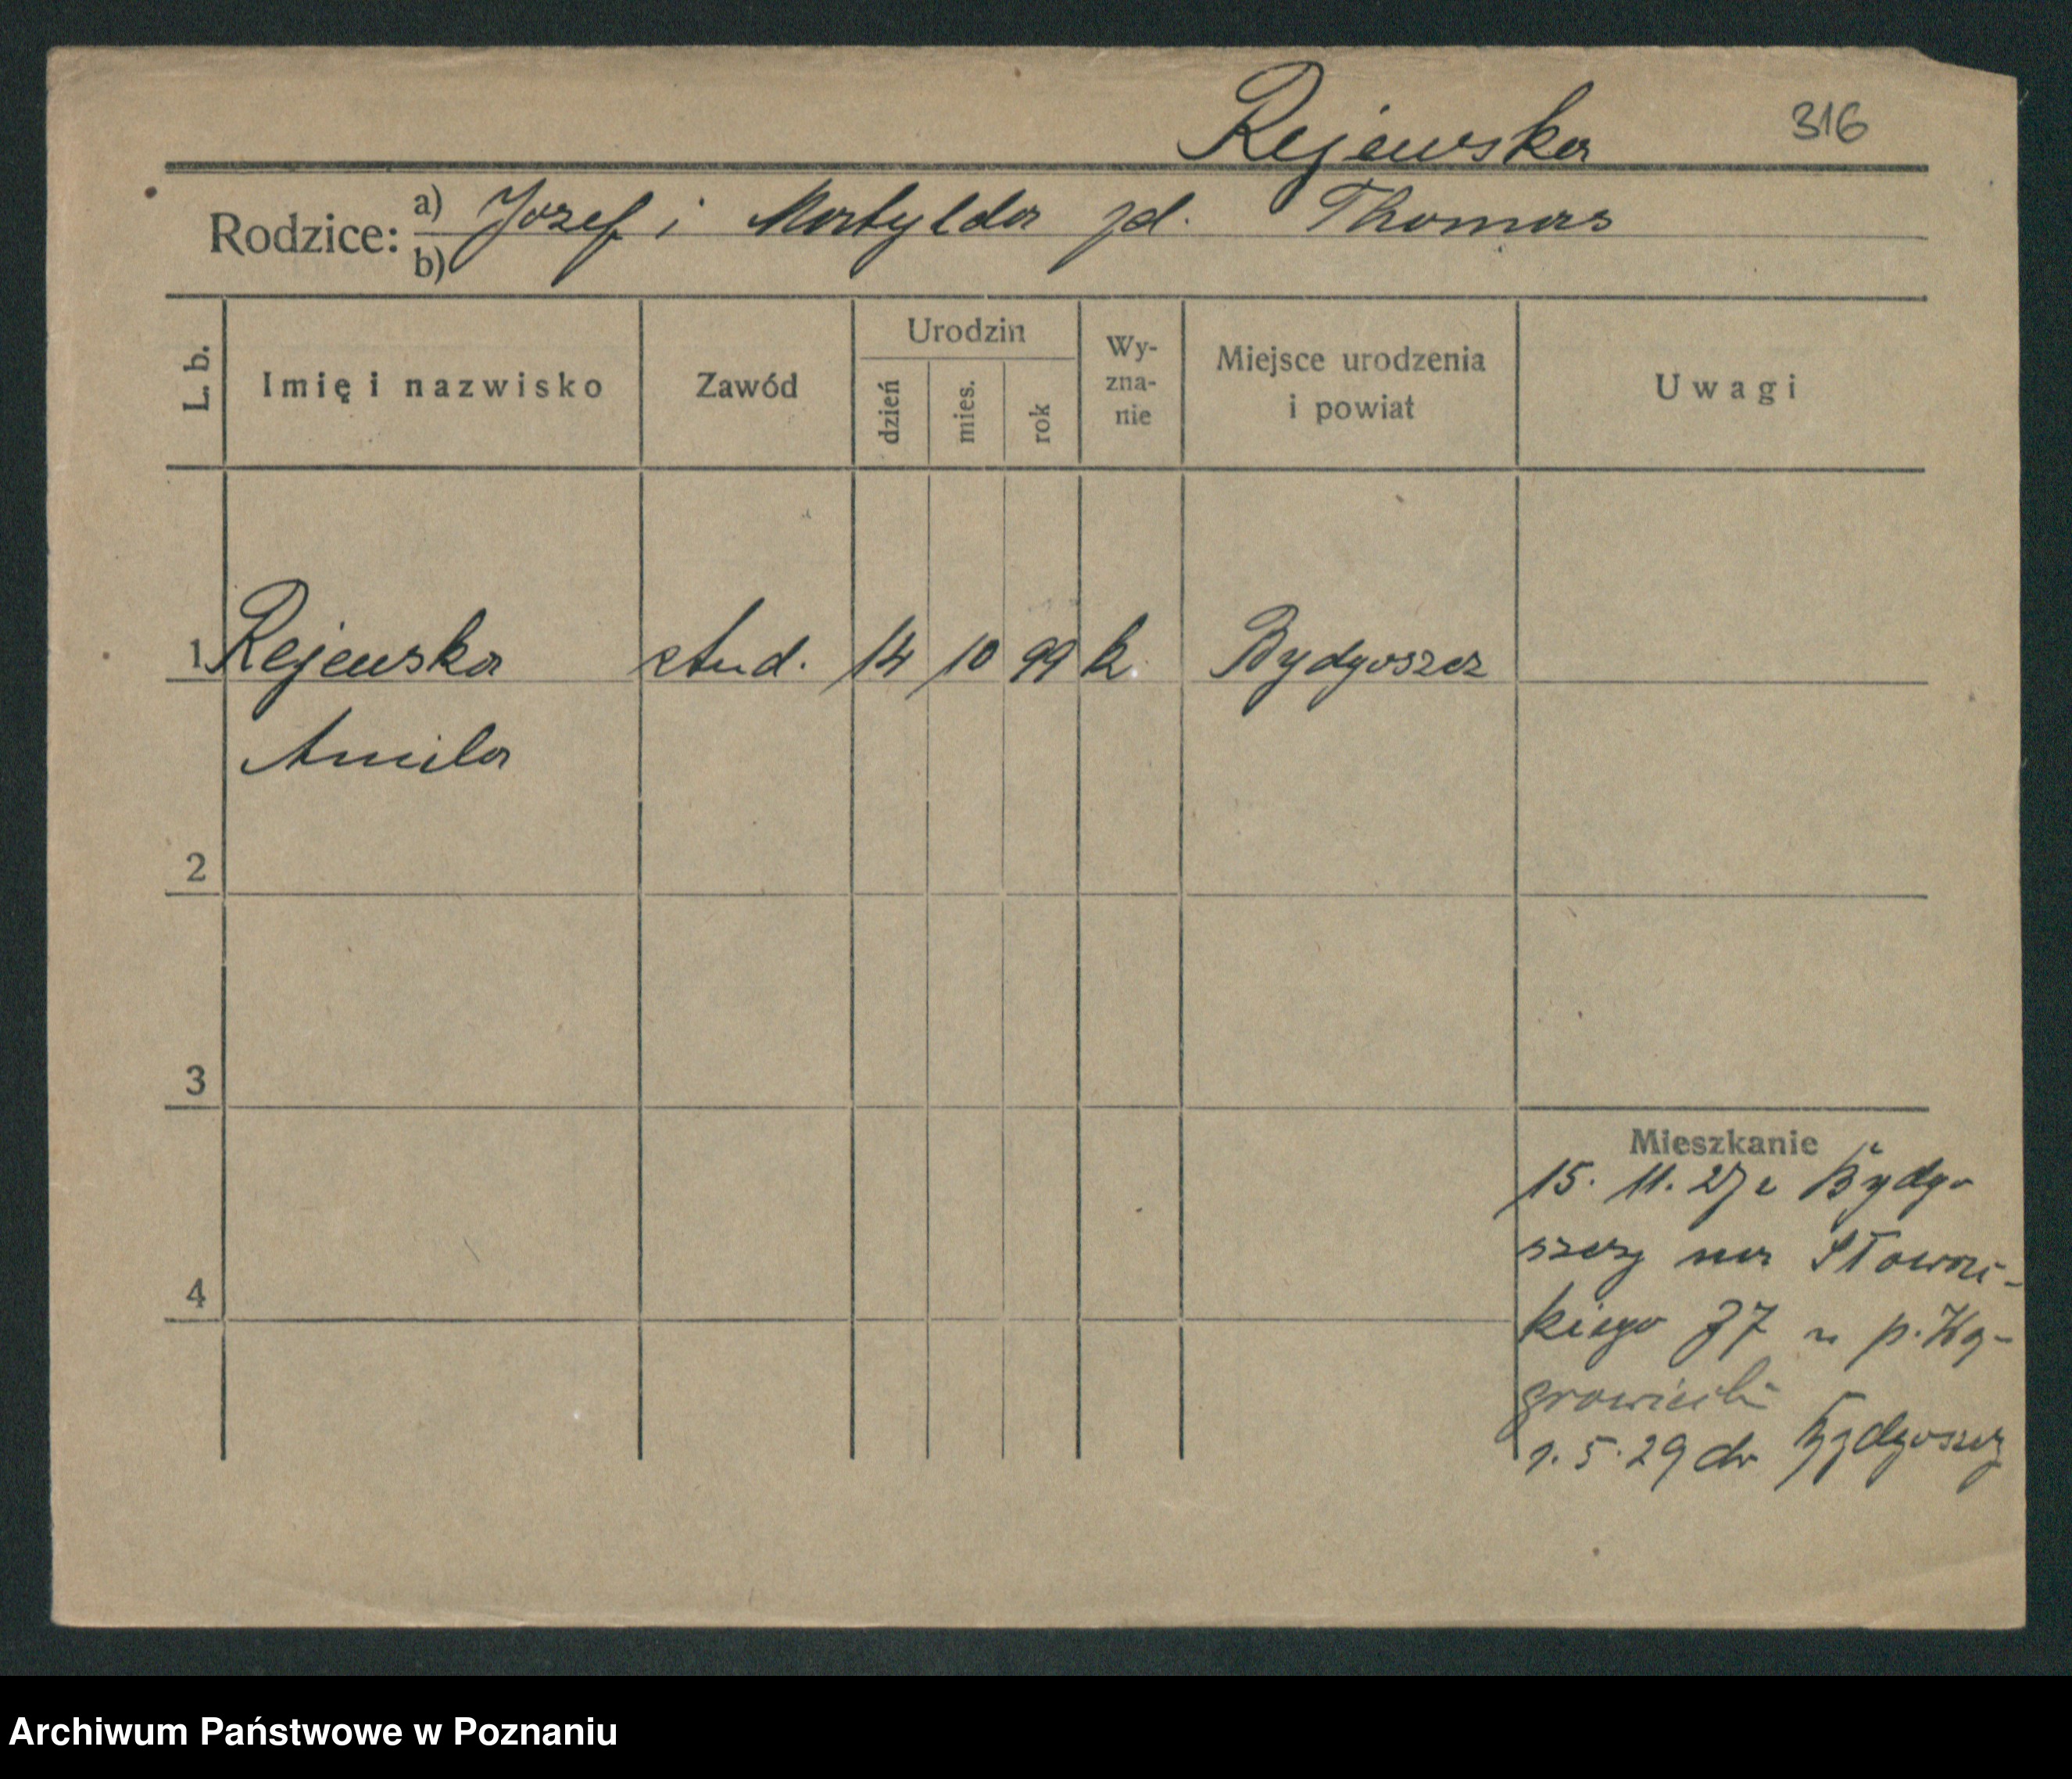 Rejewska 316
Rodzice: a) Jozef i Matylda zd. Thomas
b)
L. b. Imię i nazwisko Zawód Urodzin dzień mies. rok Wy-zna-nie Miejsce urodzenia i powiat Uwagi
1 Rejewska stud. 14 10 99 k. Bydgoszcz
Amila
2
3
Mieszkanie
15. 11. 27 z Bydgo
szczy na Słowac-
kiego 37 u p. Wą-
growiecki
1. 5. 29 do Bydgoszcz
4
Archiwum Państwowe w Poznaniu